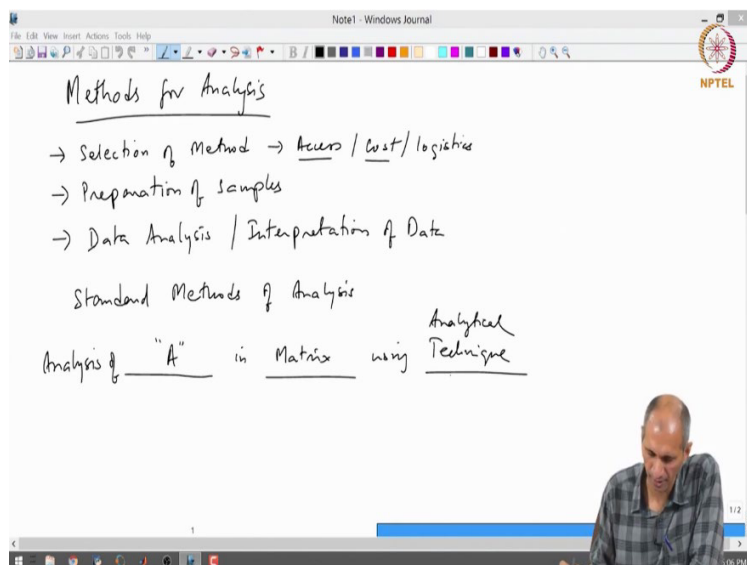 Note1 - Windows Journal
File Edit View Insert Actions Tools Help
B I
NPTEL
Methods for Analysis
→ Selection of Method → Access / Cost / logistics
→ Preparation of Samples
→ Data Analysis / Interpretation of Data
Standard Methods of Analysis
Analytical
Analysis of "A" in Matrix using Technique
1/2
1
:06 PM